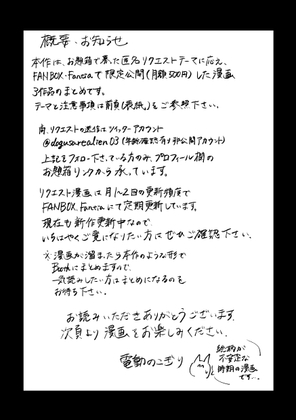 概要・お知らせ
本作は、お題箱で募った匿名リクエストテーマに応え、
FANBOX・Fantiaで限定公開(月額500円)した漫画
3作品のまとめです。
テーマと注意事項は前頁(表紙)をご参照下さい。
尚、リクエストの送信はツイッターアカウント
上記をフォロー下さっている方のみ、プロフィール欄の
お題箱リンクから承っています。
リクエスト漫画は月1~2回の更新頻度で
FANBOX、Fantiaにて定期更新しています。
現在も新作更新中なので
いちはやくご覧になりたい方はぜひご確認下さい。
※漫画が溜まったら本作のような形で
Boothにまとめますので、
一気読みしたい方はまとめになるのを
お待ち下さい。
お読みいただきありがとうございます。
次頁より漫画をお楽しみください。
電動のこぎり
絵柄が
不安定な
時期の漫画
です…